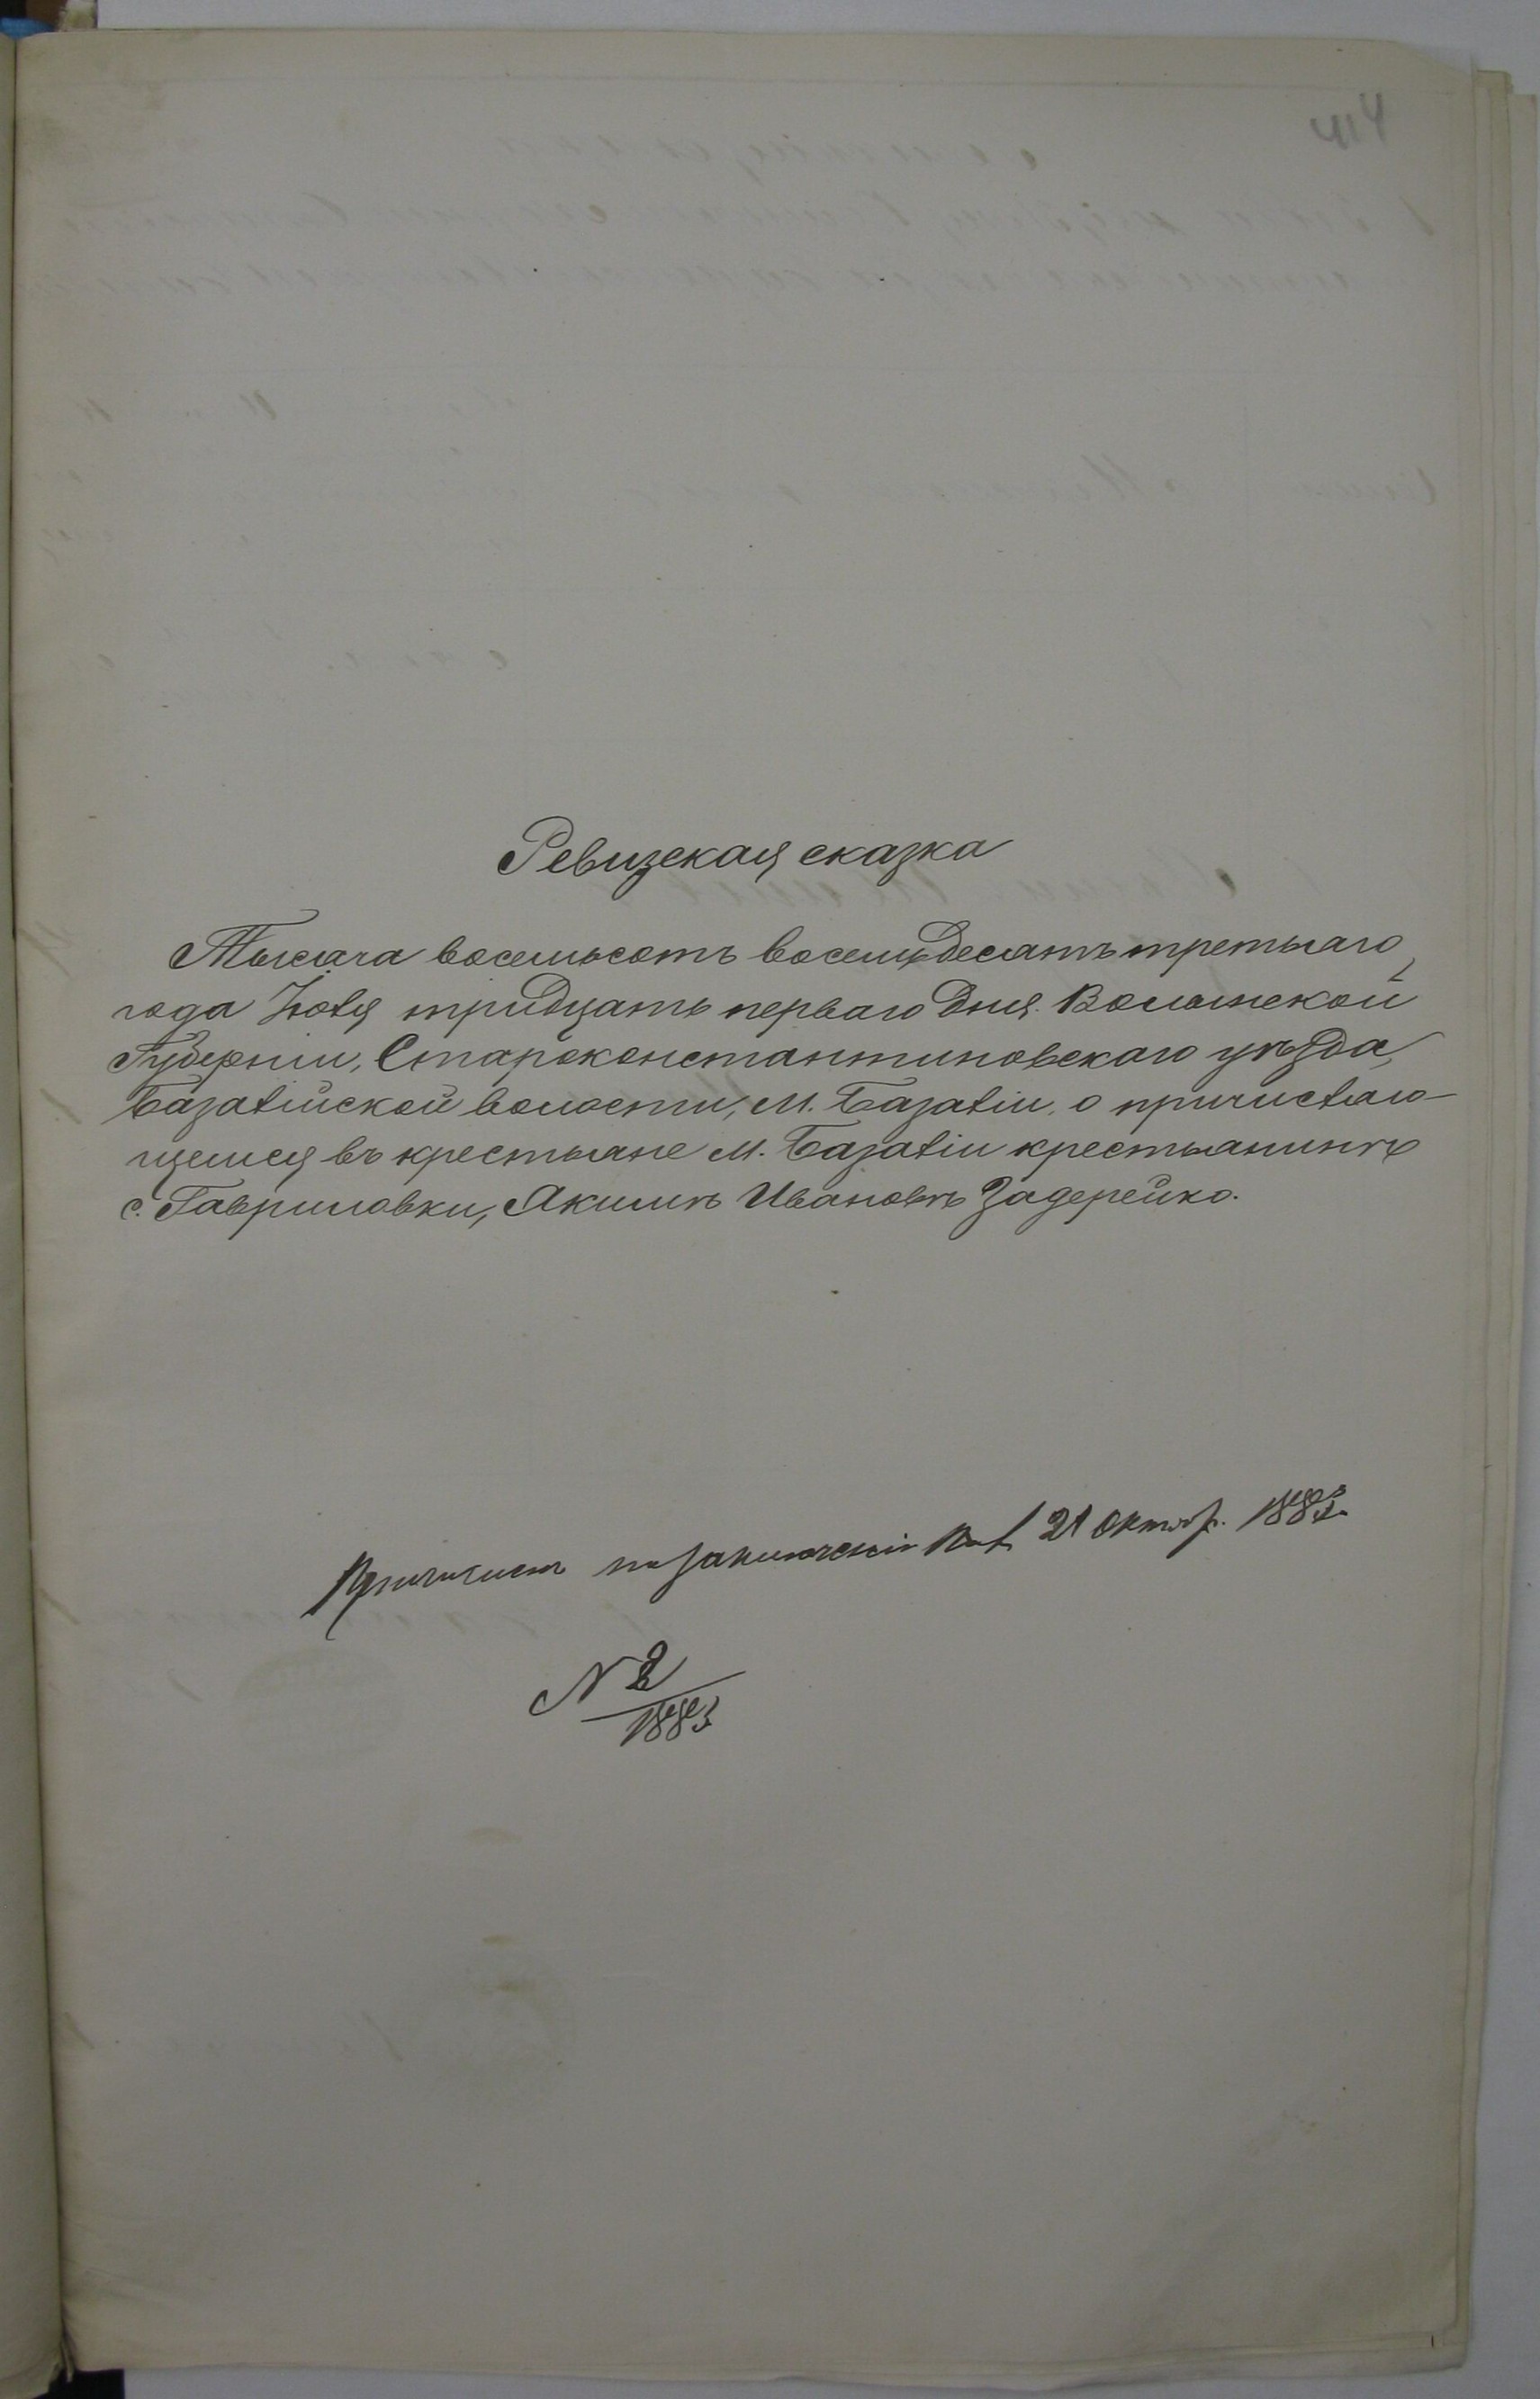 414
Ревизская сказка
Тысяча восемьсотъ восемьдесятъ третьяго
года Іюля тридцать перваго дня. Волынской
Губерніи, Староконстантиновскаго уѣзда,
Базалійской волости, М. Базаліи, о причисляю-
щемся въ крестьяне М. Базаліи крестьянинѣ
с. Гавриловки, Якимѣ Ивановѣ Задерейко.
Причислен по заключенію 21 Октяб. 1883.
N 2
1883